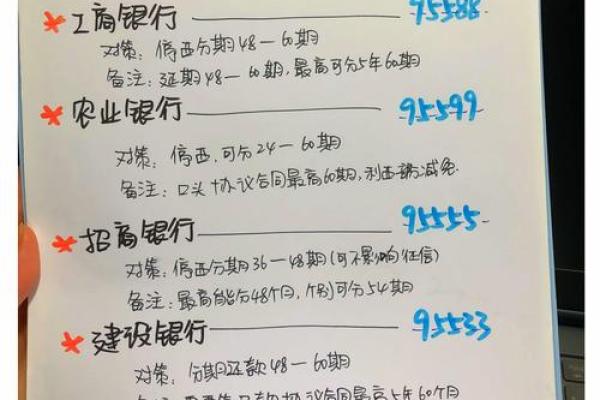 工商银行 95588
对策：停西分期48—60期
备注：延期48—60期，最高可分5年60期
农业银行 95599
对策：停西，可分24—60期
备注：口头协议合同最高60期，利西减免
招商银行 95555
对策：停西分期36—48期(可不影响征信)
备注：最高能分48个月，个别可分54期
建设银行 95533
对策：分期还款48—60期
协议合同最高5年60个月